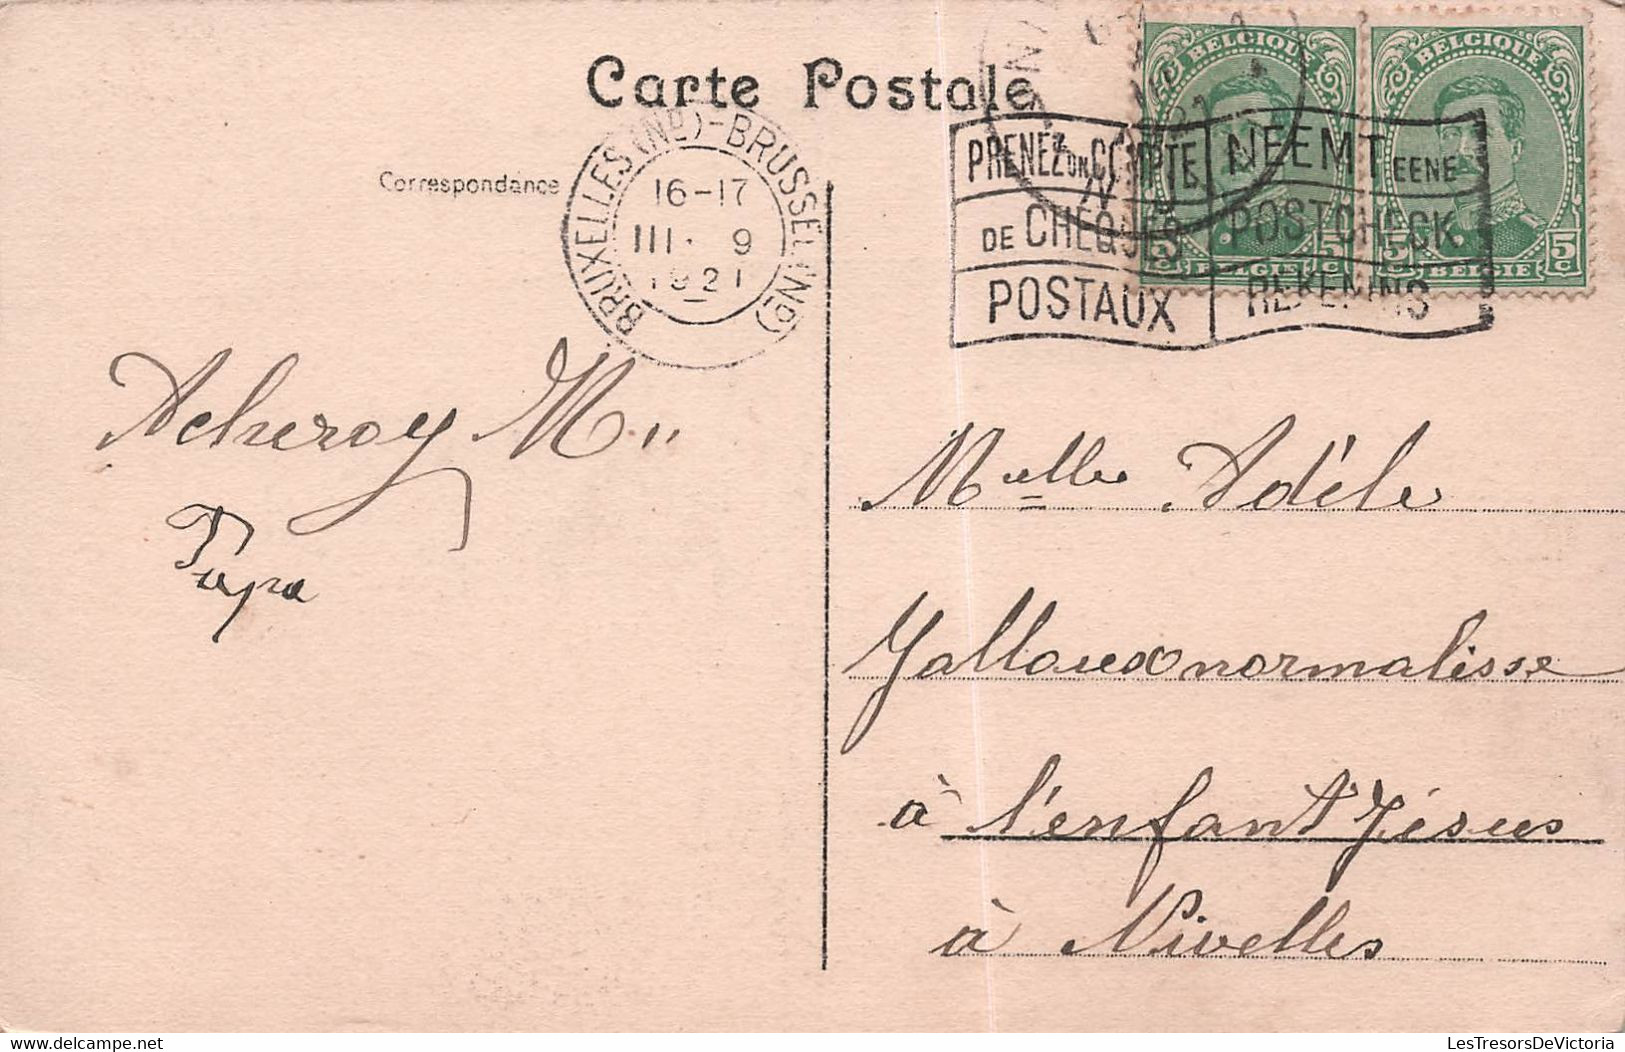 Carte Postale
Correspondance
BRUXELLES (ND)-BRUSSEL (ND)
16-17
III. 9
1921
PRENEZ UN COMPTE
DE CHEQUES
POSTAUX
NEEMT EENE
POSTCHECK
REKENING
BELGIQUE
5 C BELGIE 5 C
BELGIQUE
5 C BELGIE 5 C
Papa
Melle Adèle
normalisse
à l'enfant Jésus
à Nivelles
LesTresorsDeVictoria
https://www.delcampe.net